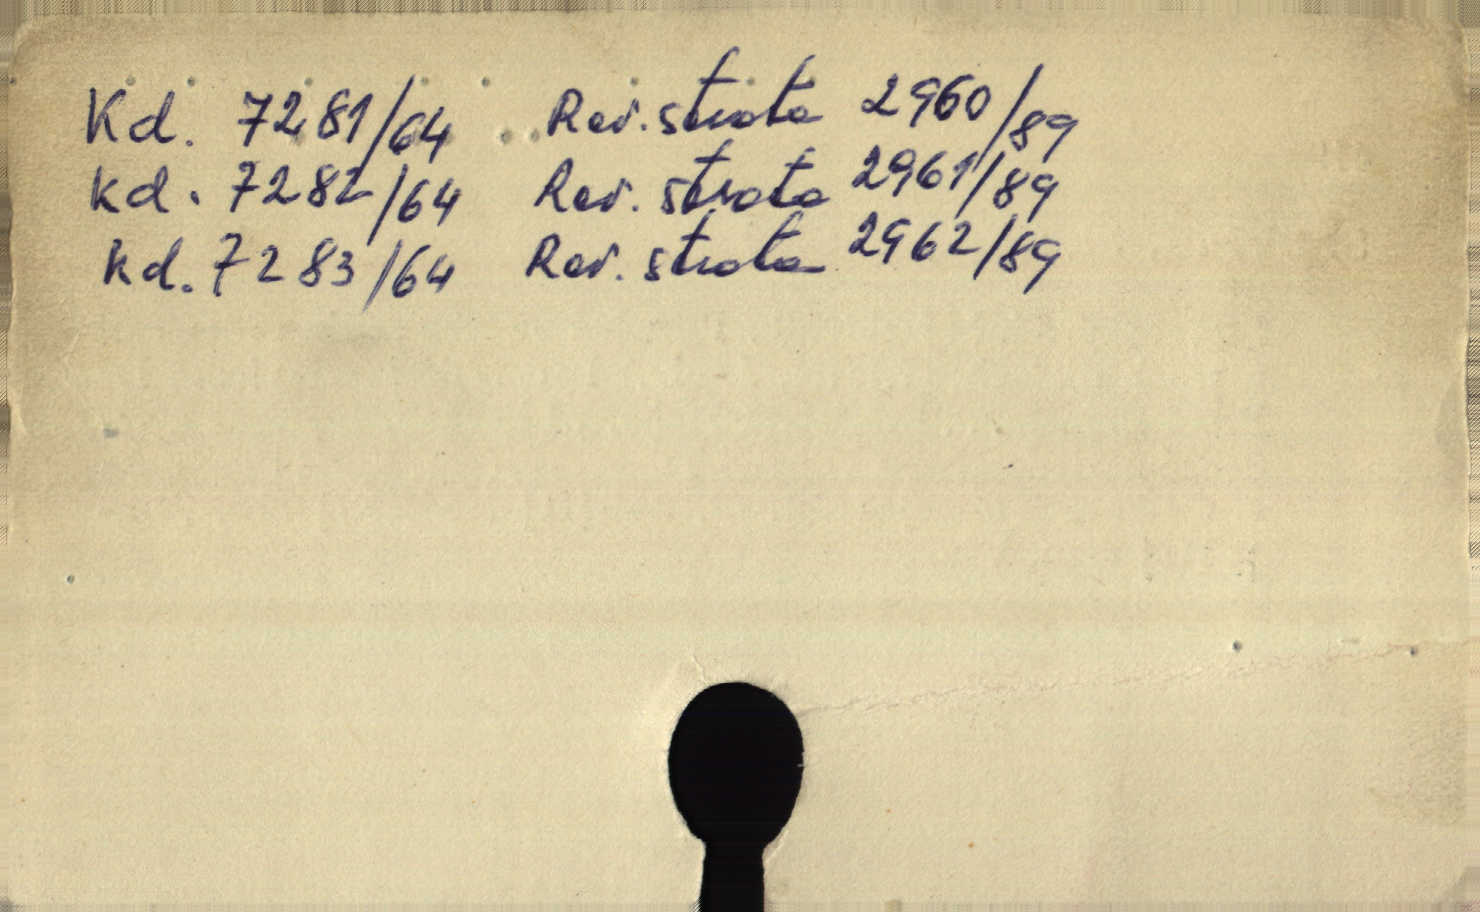 Kd. 7281/64 Rev. strata 2960/89
kd. 7282/64 Rev. strata 2961/89
kd. 7283/64 Rev. strata 2962/89